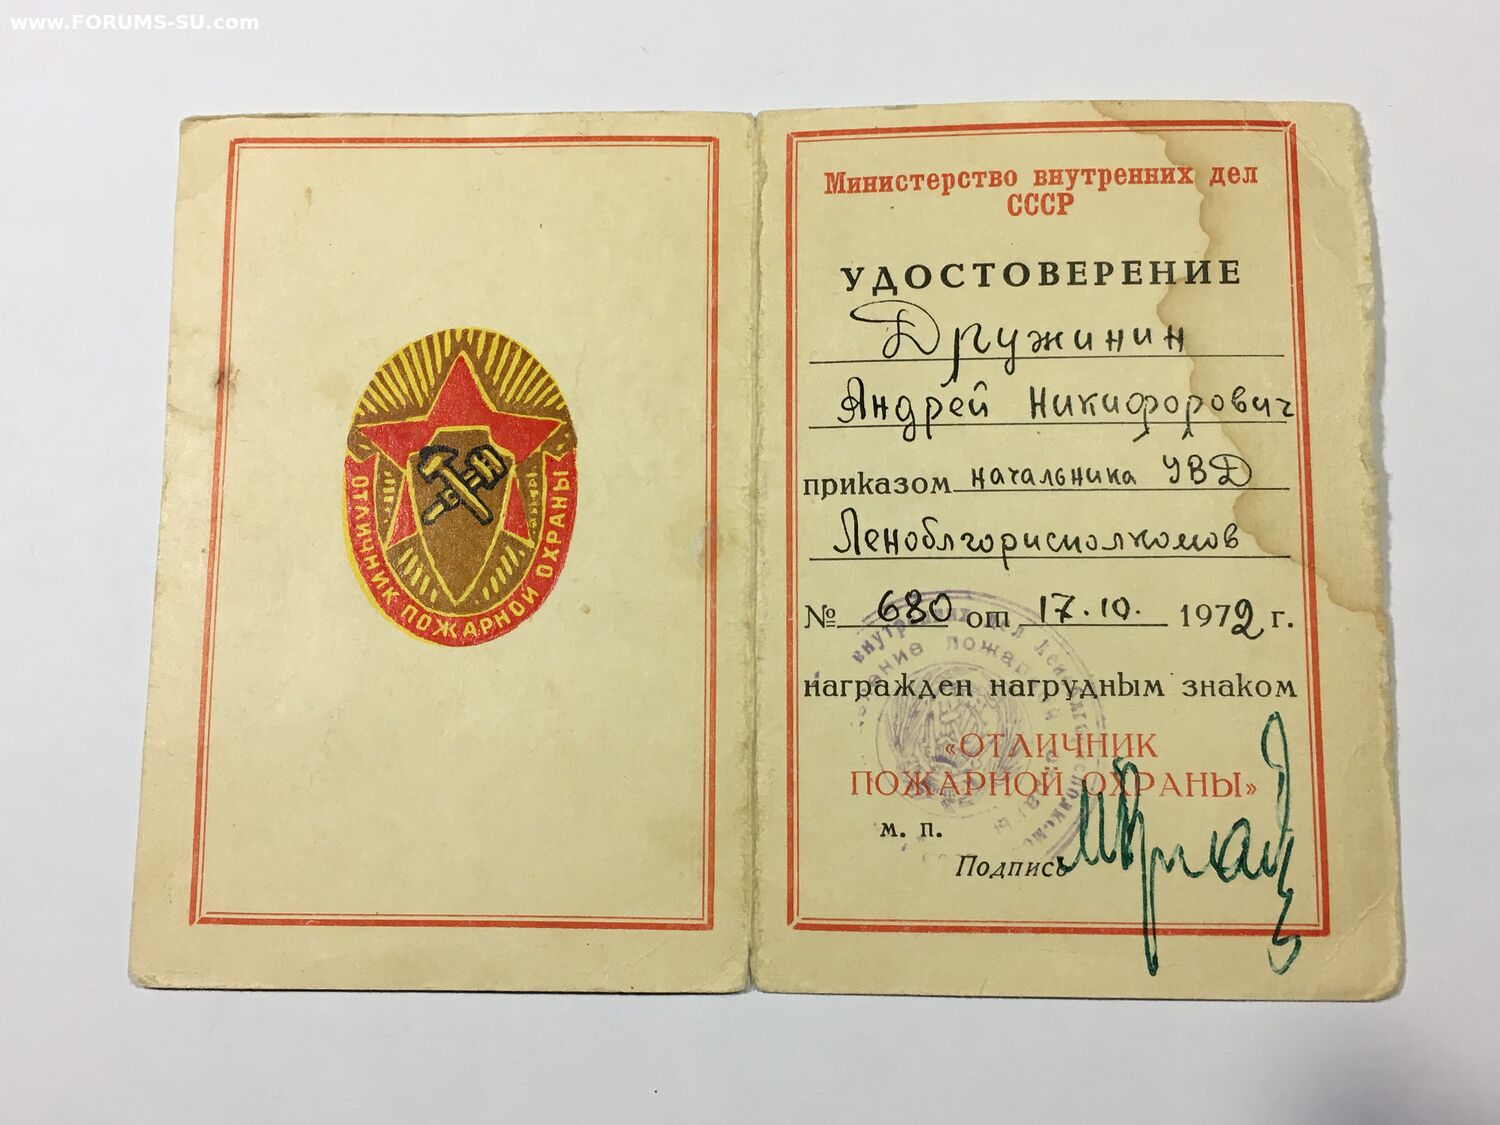 www.FORUMS-SU.com
ОТЛИЧНИК ПОЖАРНОЙ ОХРАНЫ
Министерство внутренних дел
СССР
УДОСТОВЕРЕНИЕ
Дружинин
Андрей Никифорович
приказом начальника УВД
Леноблгорисполкомов
№ 680 от 17.10. 1972 г.
награжден нагрудным знаком
«ОТЛИЧНИК
ПОЖАРНОЙ ОХРАНЫ»
м. п.
Подпись